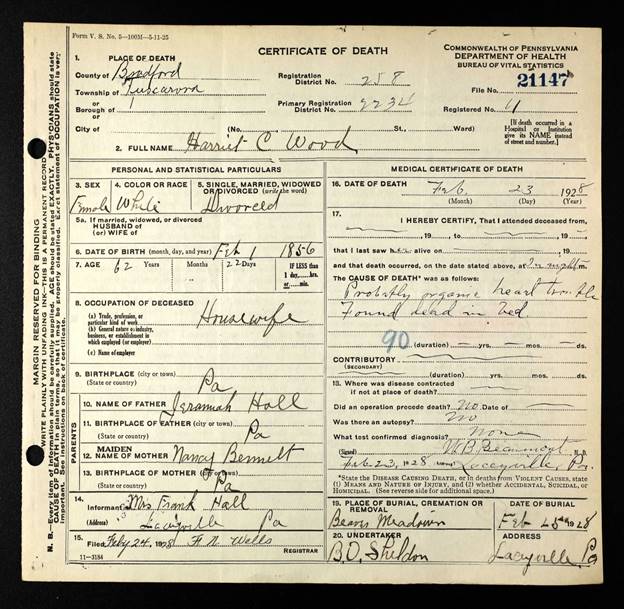 Form V. S. No. 5—100M—5-11-25
CERTIFICATE OF DEATH
COMMONWEALTH OF PENNSYLVANIA
DEPARTMENT OF HEALTH
BUREAU OF VITAL STATISTICS
1. PLACE OF DEATH
County of Bradford
Township of Tuscarora
or
Borough of
City of
Registration District No. 258
Primary Registration District No. 2234
File No. 21147
Registered No. 4
(No. St., Ward)
[If death occurred in a Hospital or Institution give its NAME instead of street and number.]
2. FULL NAME Harriet C Wood
PERSONAL AND STATISTICAL PARTICULARS
3. SEX Female
4. COLOR OR RACE White
5. SINGLE, MARRIED, WIDOWED OR DIVORCED (write the word) Divorced
5a. If married, widowed, or divorced
HUSBAND of
(or) WIFE of
6. DATE OF BIRTH (month, day, and year) Feb 1 1856
7. AGE 62 Years Months 22 Days
IF LESS than 1 day, hrs. or min.
8. OCCUPATION OF DECEASED
(a) Trade, profession, or particular kind of work Housewife
(b) General nature of industry, business, or establishment in which employed (or employer)
(c) Name of employer
9. BIRTHPLACE (city or town)
(State or country) Pa
PARENTS
10. NAME OF FATHER Jeramiah Hall
11. BIRTHPLACE OF FATHER (city or town)
(State or country) Pa
12. MAIDEN NAME OF MOTHER Nancy Bennett
13. BIRTHPLACE OF MOTHER (city or town)
(State or country) Pa
14. Informant Mrs Frank Hall
(Address) Laceyville Pa
15. Filed Feby 24, 1928 F N Wells
REGISTRAR
11-3184
MEDICAL CERTIFICATE OF DEATH
16. DATE OF DEATH Feb 23 1928
(Month) (Day) (Year)
17. I HEREBY CERTIFY, That I attended deceased from
, 19 to , 19
that I last saw her alive on , 19
and that death occurred, on the date stated above, at In night m.
The CAUSE OF DEATH* was as follows:
Probably organic heart trouble
Found dead in bed
90
(duration) yrs. mos. ds.
CONTRIBUTORY
(SECONDARY)
(duration) yrs. mos. ds.
18. Where was disease contracted
if not at place of death?
Did an operation precede death? No Date of
Was there an autopsy? No
What test confirmed diagnosis? None
(Signed) W.B. Beaumont, M. D.
Feb 23, 1928 Laceyville, Pa.
*State the DISEASE CAUSING DEATH, or in deaths from VIOLENT CAUSES, state (1) MEANS AND NATURE OF INJURY, and (2) whether ACCIDENTAL, SUICIDAL, or HOMICIDAL. (See reverse side for additional space.)
19. PLACE OF BURIAL, CREMATION OR REMOVAL
DATE OF BURIAL
Feb 25 1928
20. UNDERTAKER
B.O. Sheldon
ADDRESS
Laceyville Pa
MARGIN RESERVED FOR BINDING
WRITE PLAINLY WITH UNFADING INK—THIS IS A PERMANENT RECORD
N. B.—Every item of information should be carefully supplied. AGE should be stated EXACTLY. PHYSICIANS should state CAUSE OF DEATH in plain terms, so that it may be properly classified. Exact statement of OCCUPATION is very important. See instructions on back of certificate.